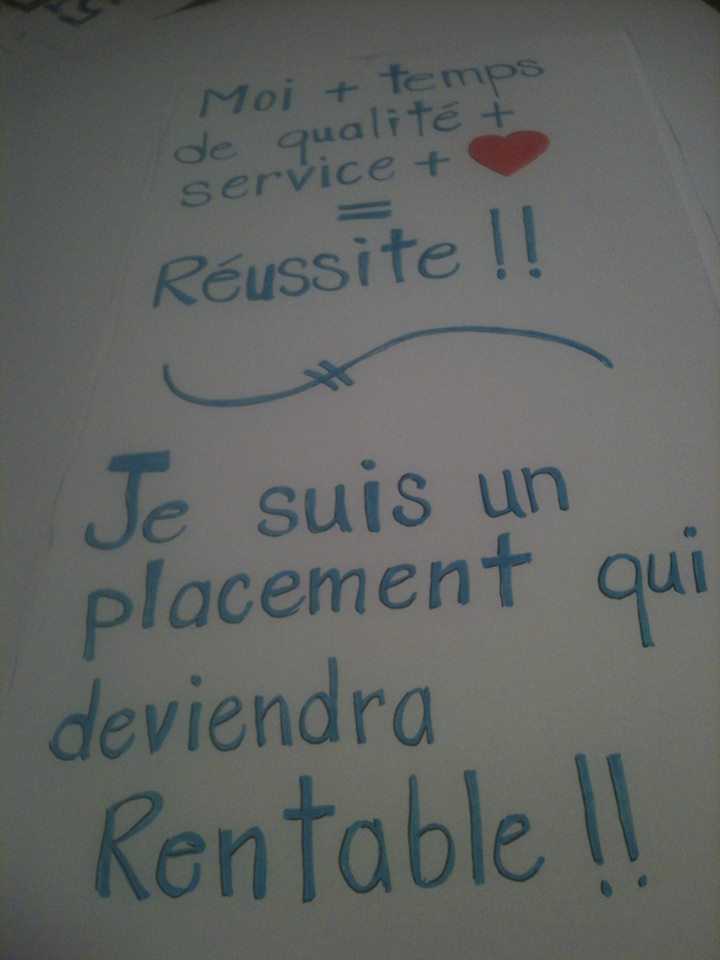 Moi + temps
de qualité +
service + ❤
=
Réussite !!
Je suis un
placement qui
deviendra
Rentable !!